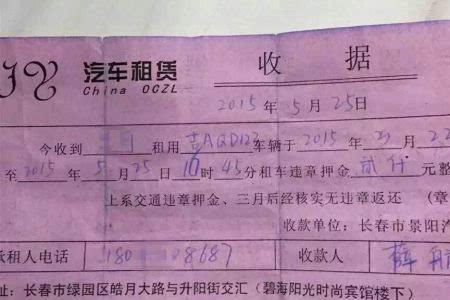 JY 汽车租赁 收据
China OCZL
2015年5月25日
今收到 租用吉AQD122车辆于2015年 月22
至2015年5月25日10时45分租车违章押金贰仟元整
上系交通违章押金、三月后经核实无违章返还 (章
收款单位：长春市景阳汽
承租人电话 180 08687 收款人 薛
址：长春市绿园区皓月大路与升阳街交汇（碧海阳光时尚宾馆楼下）